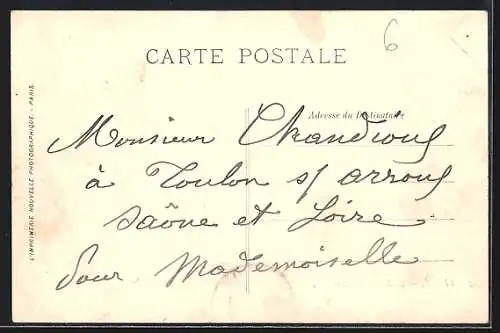 6
CARTE POSTALE
Adresse du Destinataire
Monsieur Chandioux
à Toulon s/ arroux
Saône et Loire
Pour Mademoiselle
L'IMPRIMERIE NOUVELLE PHOTOGRAPHIQUE. - PARIS.